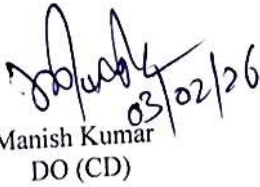 03/02/26
Manish Kumar
DO (CD)